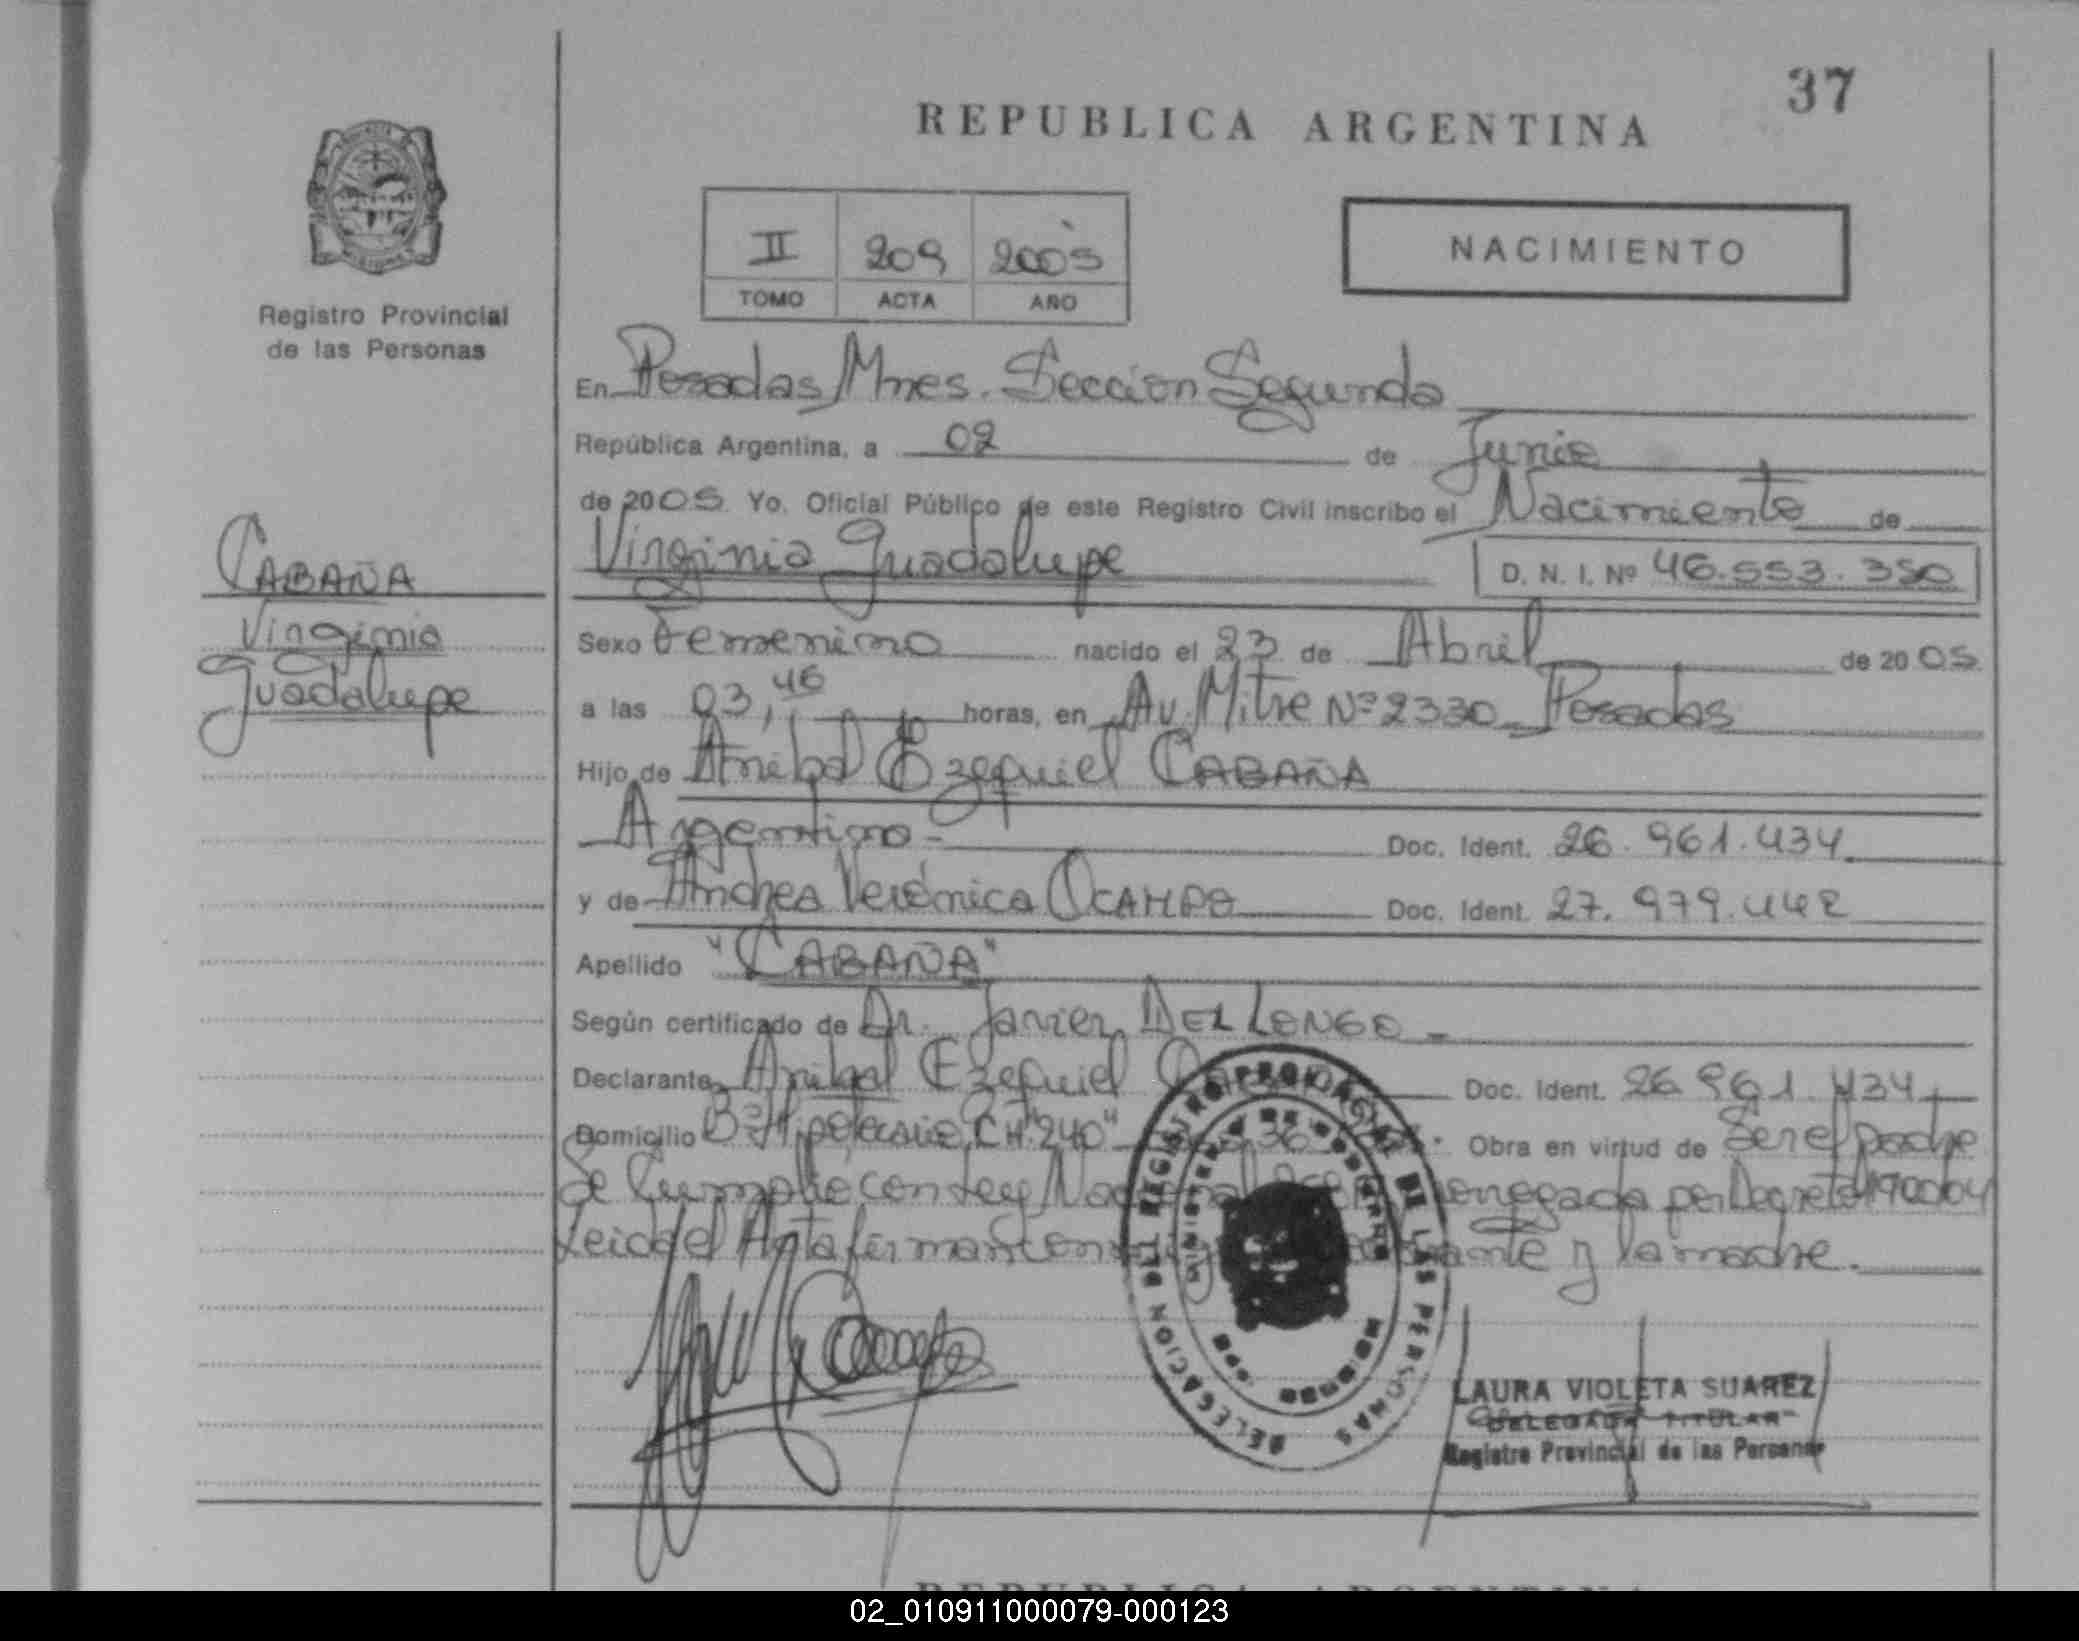 37
REPUBLICA ARGENTINA
II 209 2005
TOMO ACTA AÑO
NACIMIENTO
Registro Provincial
de las Personas
En Posadas, Mnes. Sección Segunda
República Argentina, a 02 de Junio
de 2005. Yo, Oficial Público de este Registro Civil inscribo el Nacimiento de
Virginia Guadalupe
D. N. I. Nº 46.553.350
CABAÑA
Virginia
Guadalupe
Sexo Femenino nacido el 23 de Abril de 2005
a las 03,46 horas, en Av. Mitre Nº 2330 Posadas
Hijo de Anibal Ezequiel CABAÑA
Argentino - Doc. Ident. 26.961.434
y de Andrea Verónica OCAMPO Doc. Ident. 27.979.442
Apellido "CABAÑA"
Según certificado de Dr. Javier DEL LONGO -
Declarante Anibal Ezequiel Doc. Ident. 26.961.434
Domicilio Bº Hipotecario, CH "240" 36 Obra en virtud de Ser el padre
Se Cumplió con Ley por Decreto
Leida el Acta firman y la madre.
DELEGACION DEL REGISTRO PROVINCIAL DE LAS PERSONAS
LAURA VIOLETA SUAREZ
DELEGADA TITULAR
Registro Provincial de las Personas
REPUBLICA ARGENTINA
02_010911000079-000123